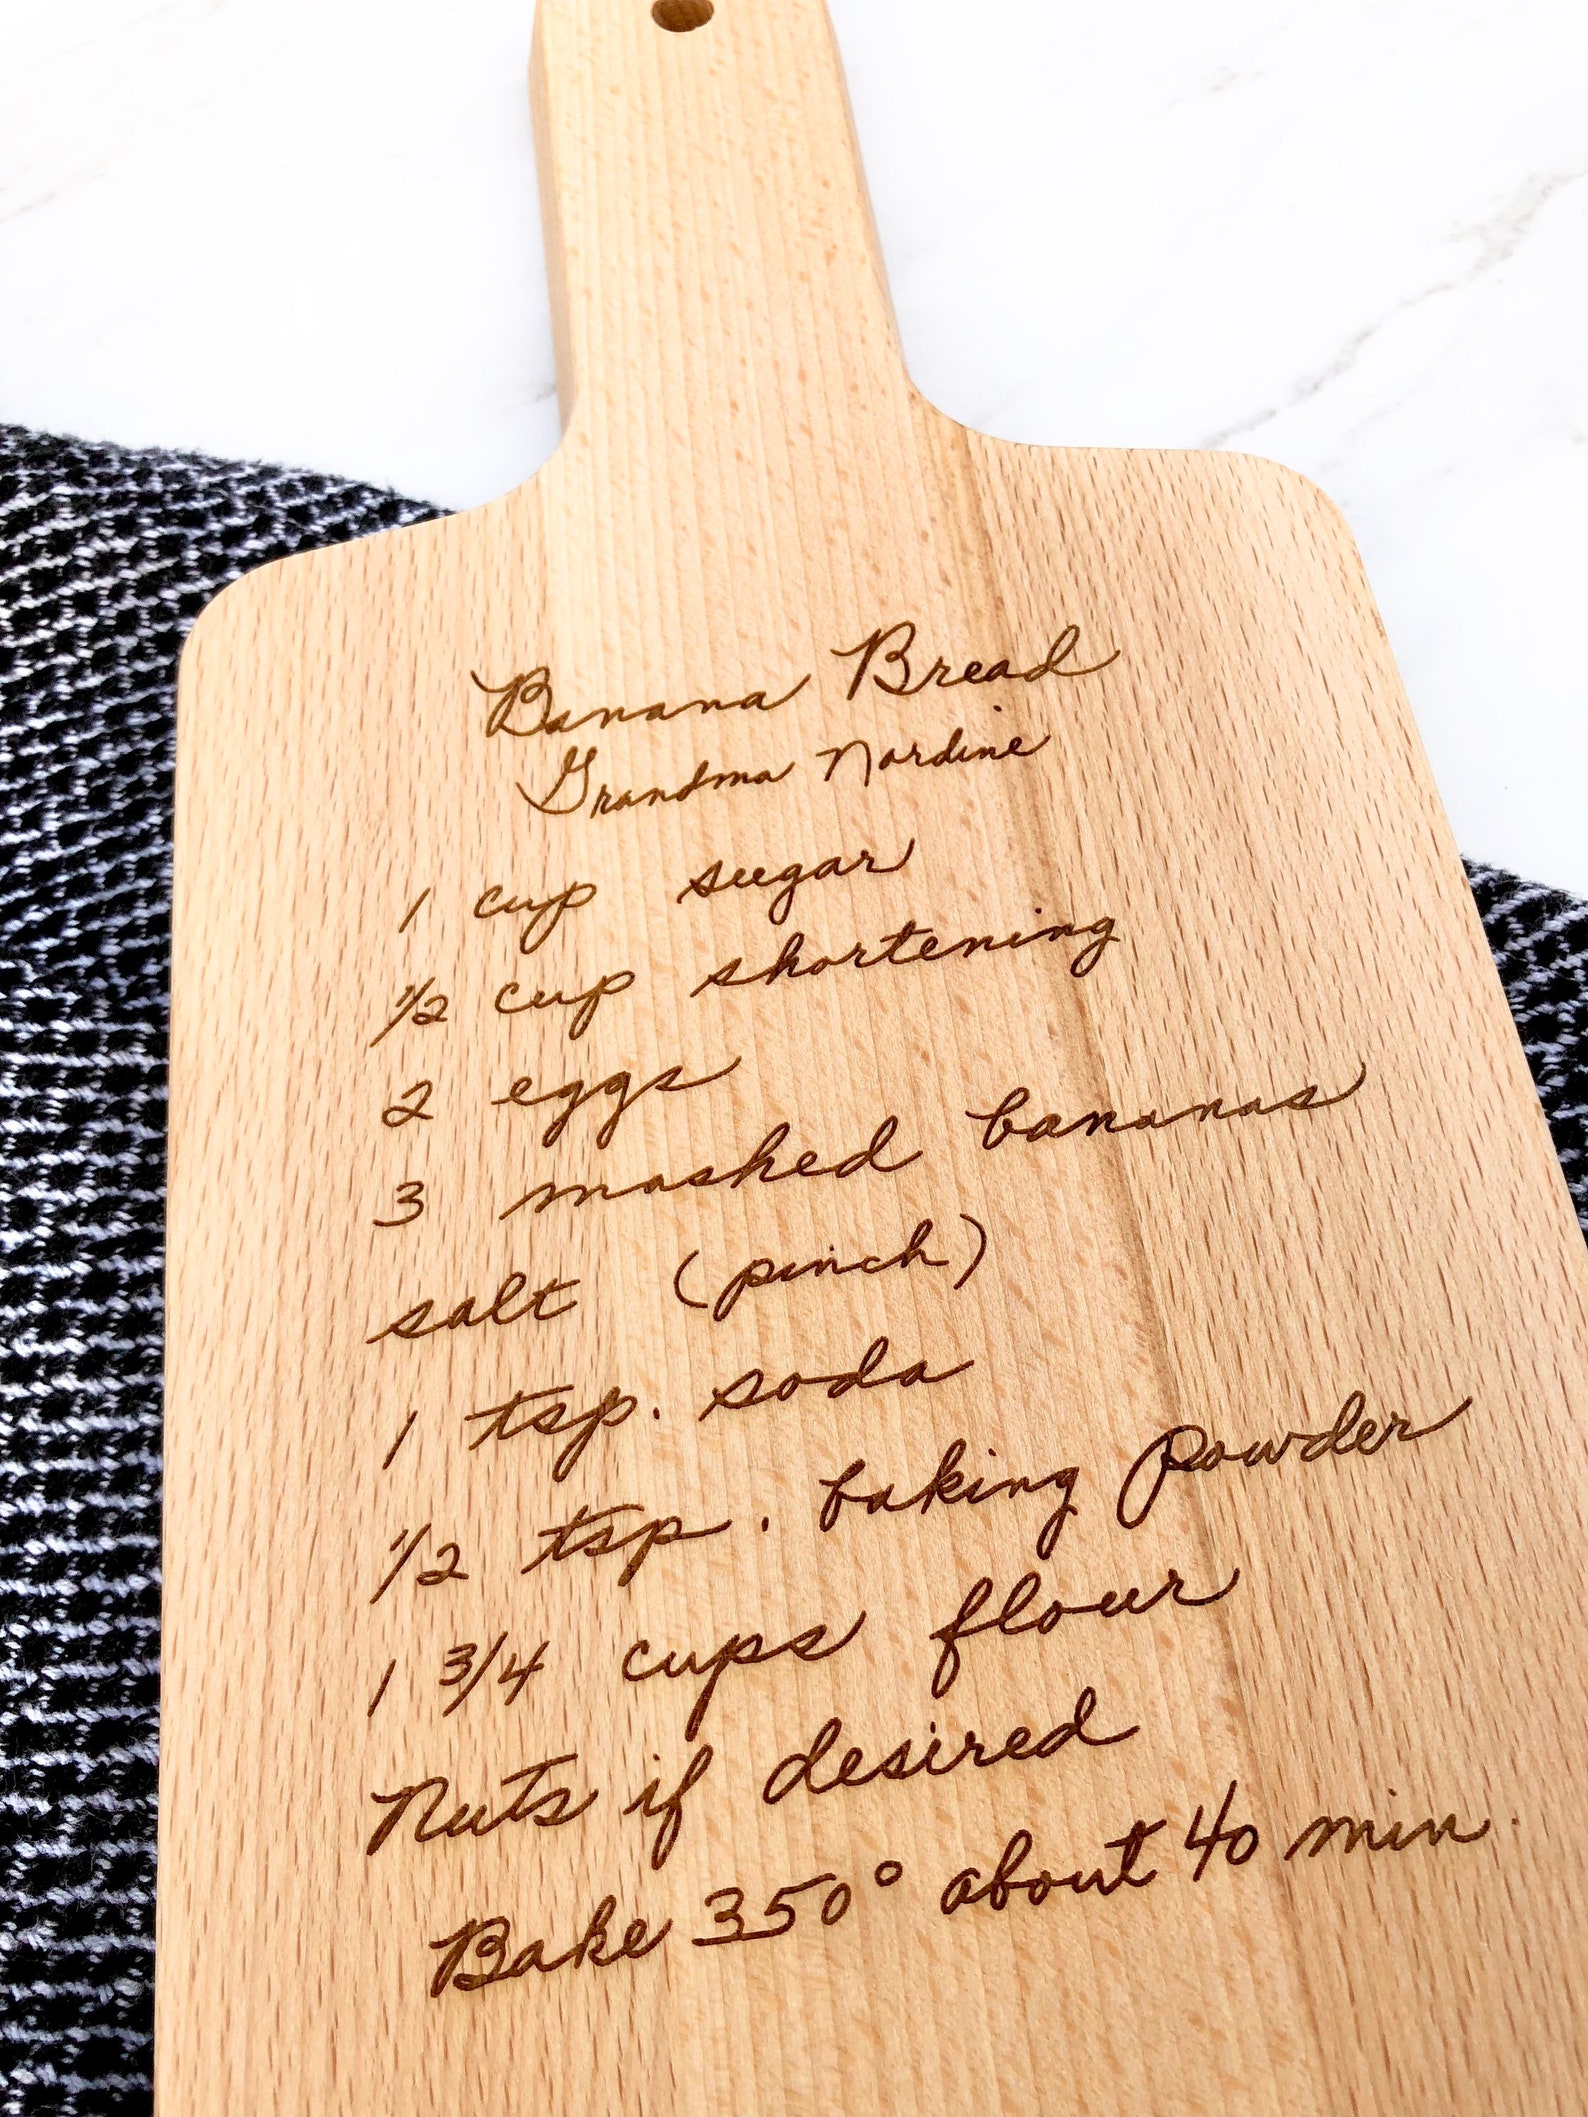 Banana Bread
Grandma Nordine
1 cup sugar
1/2 cup shortening
2 eggs
3 mashed bananas
salt (pinch)
1 tsp. soda
1/2 tsp. baking Powder
1 3/4 cups flour
Nuts if desired
Bake 350° about 40 min.